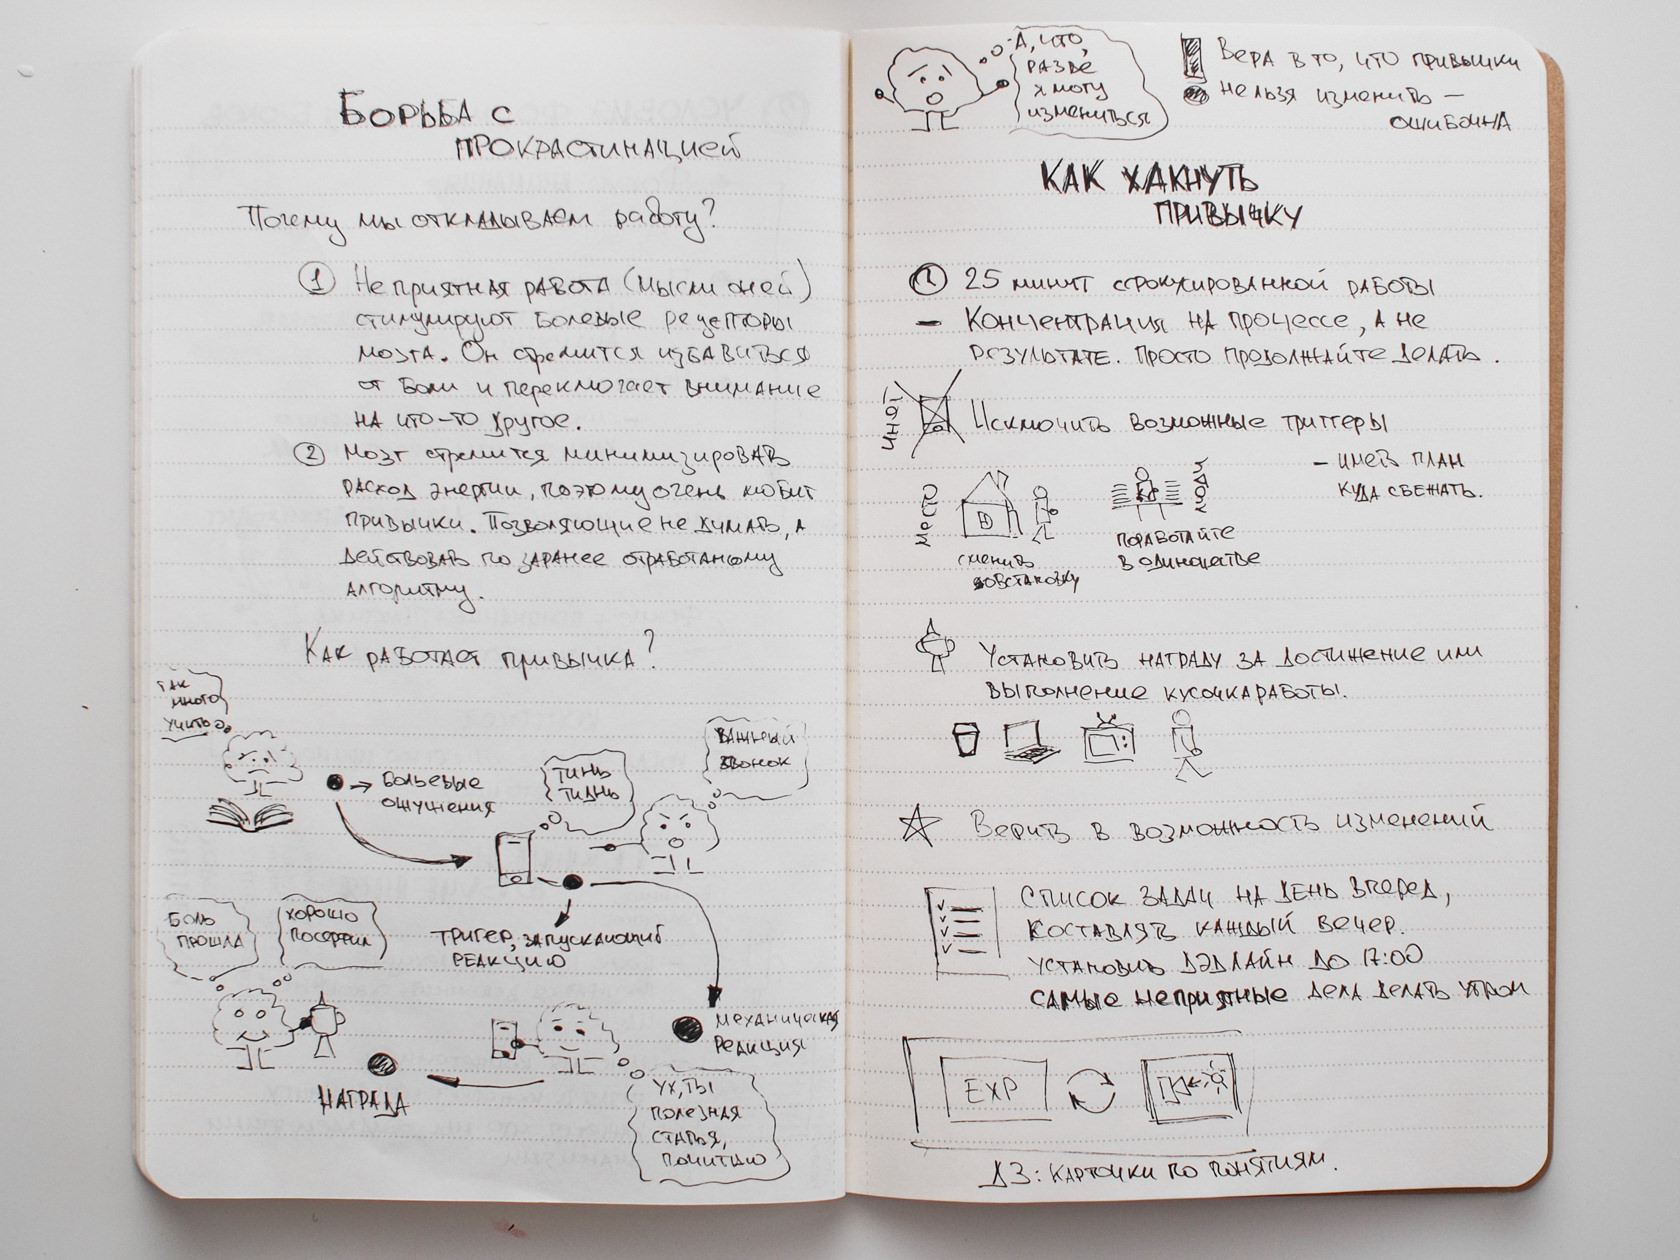 Борьба с
прокрастинацией
Почему мы откладываем работу?
1 Неприятная работа (мысли о ней)
стимулируют болевые рецепторы
мозга. Он стремится избавиться
от боли и переключает внимание
на что-то другое.
2 Мозг стремится минимизировать
расход энергии, поэтому очень любит
привычки. Позволяющие не думать, а
действовать по заранее отработаному
алгоритму.
Как работает привычка?
Так
много
учить
→ Больевые
ощущения
Тинь
Тиднь
Важный
звонок
Тригер, запускающий
реакцию
Механическая
реакция
Ух, ты
полезная
статья,
почитаю
Боль
прошла
Хорошо
посерфил
Награда
А, что,
разве
я могу
измениться
Вера в то, что привычки
нельзя изменить –
ошибочна
Как хакнуть
привычку
25 минут сфокусированной работы
– Концентрация на процессе, а не
результате. Просто продолжайте делать.
Исключить возможные триггеры
– иметь план
куда сбежать.
Место
D
сменить
обстановку
Люди
поработайте
в одиночестве
Установить награду за достижение или
выполнение кусочка работы.
Верить в возможность изменений
Список задач на день вперед,
составлять каждый вечер.
Установить дэдлайн до 17:00
самые неприятные дела делать утром
EXP
ДЗ: карточки по понятиям.